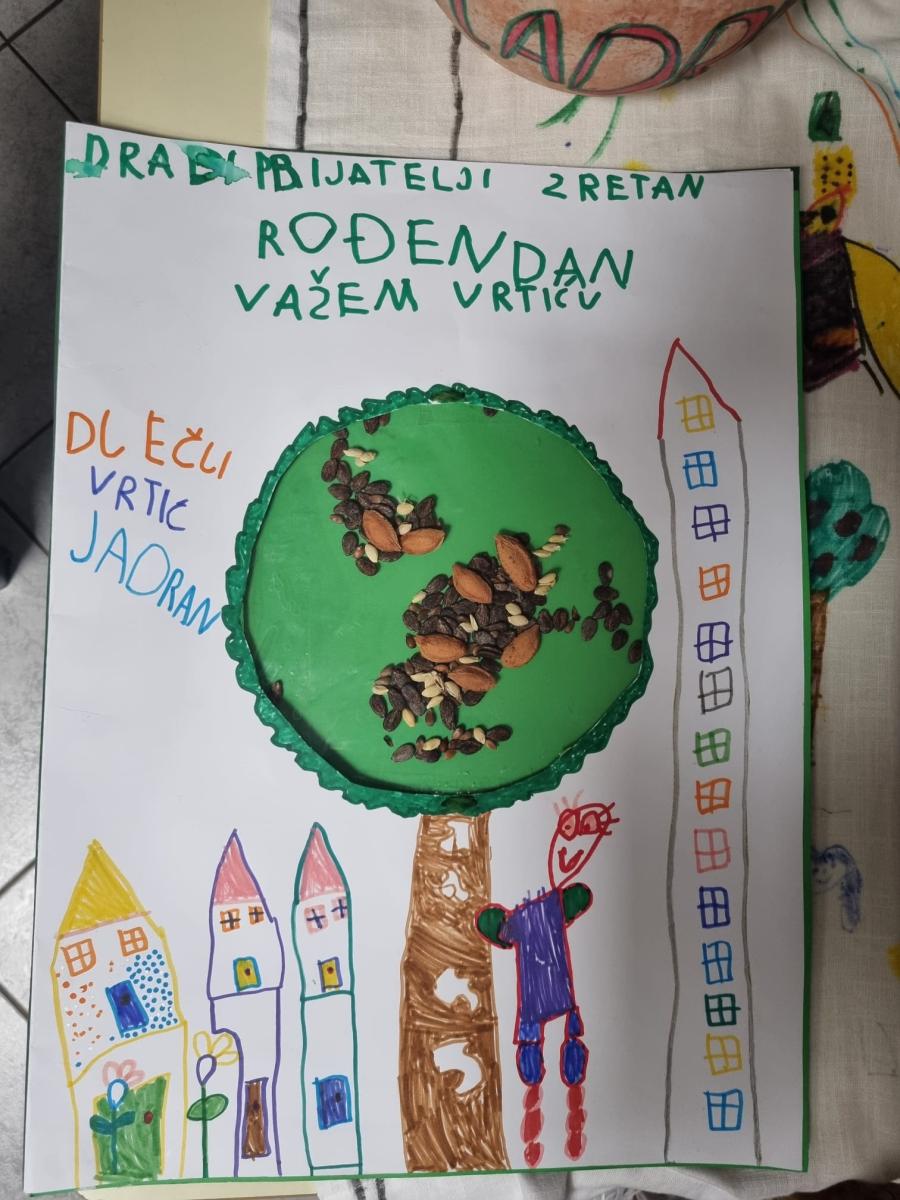 DRAGI PRIJATELJI SRETAN
ROĐENDAN
VAŠEM VRTIĆU
DJEČJI
VRTIĆ
JADRAN